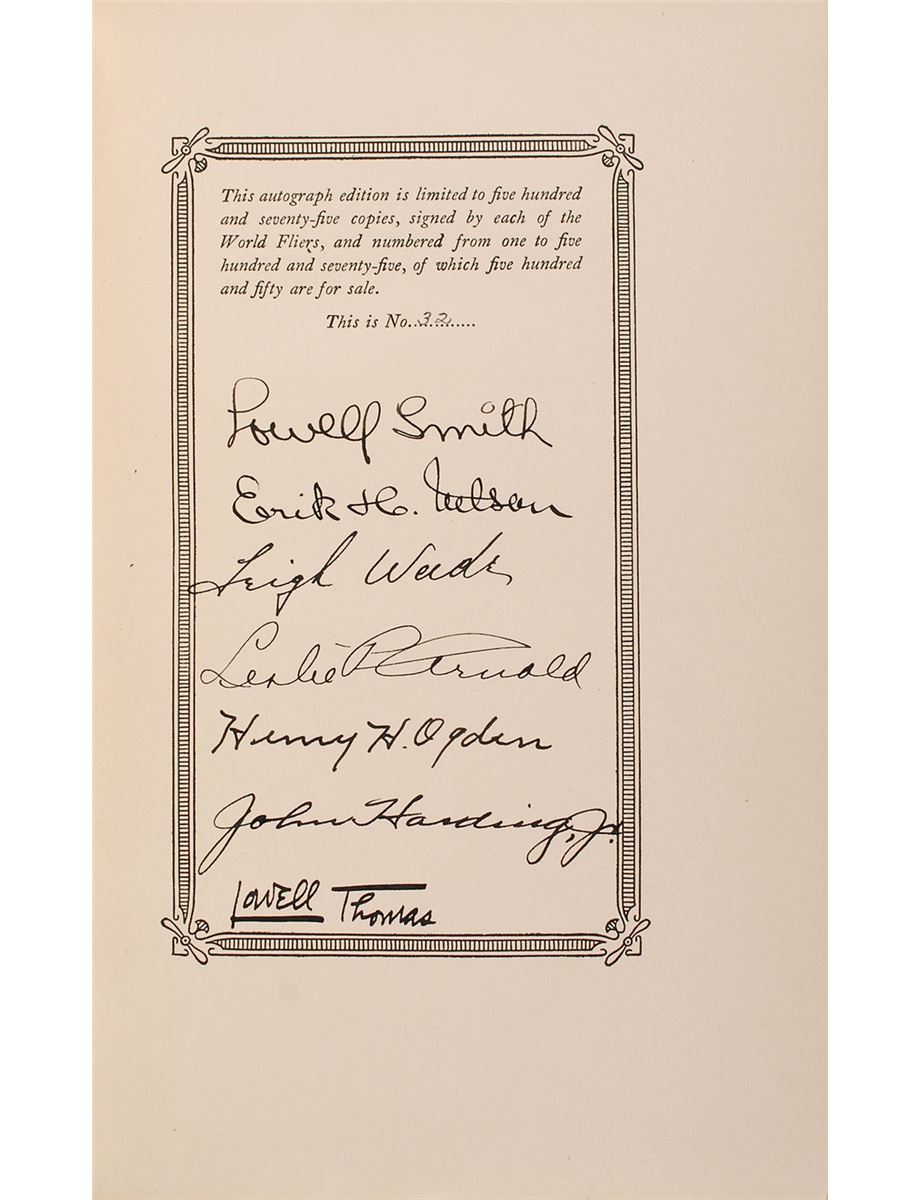 This autograph edition is limited to five hundred
and seventy-five copies, signed by each of the
World Fliers, and numbered from one to five
hundred and seventy-five, of which five hundred
and fifty are for sale.
This is No..32......
Lowell Smith
Erik H. Nelson
Leigh Wade
Leslie P. Arnold
Henry H. Ogden
John Harding, Jr.
Lowell Thomas